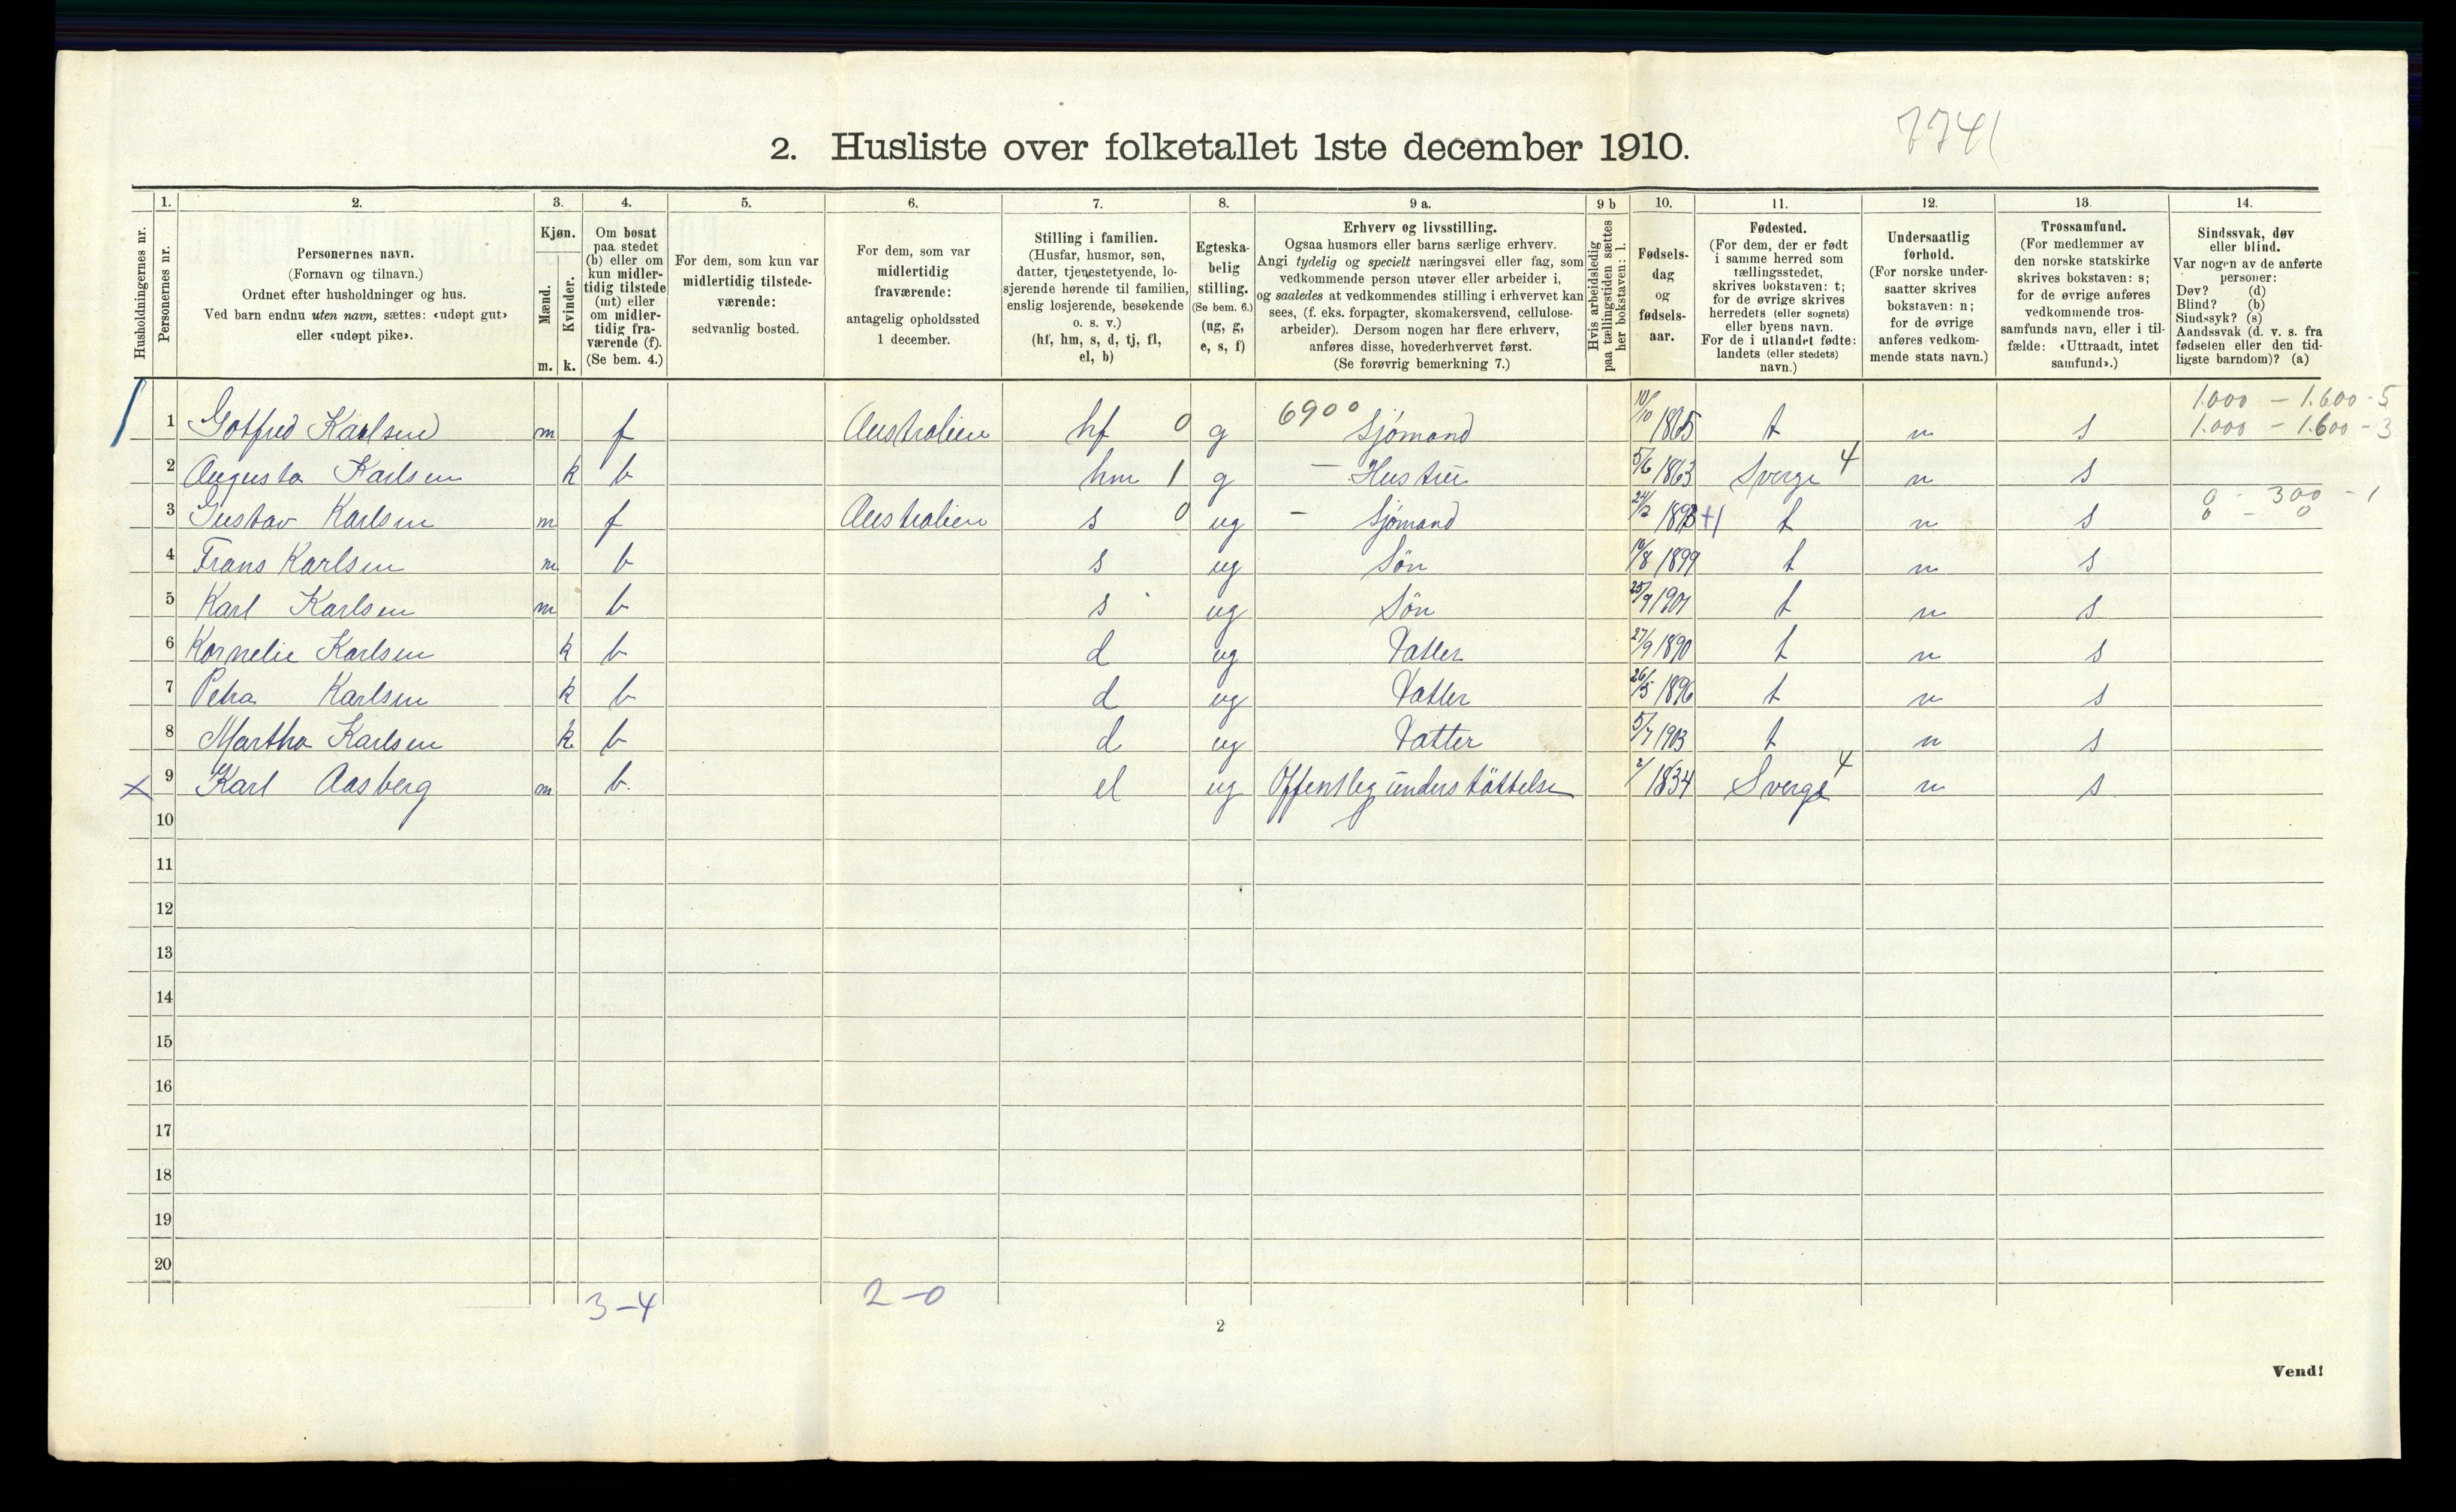 7741
2. Husliste over folketallet 1ste december 1910.
Husholdningernes nr.
1. Personernes nr.
2. Personernes navn. (Fornavn og tilnavn.) Ordnet efter husholdninger og hus. Ved barn endnu uten navn, sættes: «udøpt gut» eller «udøpt pike».
3. Kjøn. Mænd. m. Kvinder. k.
4. Om bosat paa stedet (b) eller om kun midlertidig tilstede (mt) eller om midlertidig fraværende (f). (Se bem. 4.)
5. For dem, som kun var midlertidig tilstedeværende: sedvanlig bosted.
6. For dem, som var midlertidig fraværende: antagelig opholdssted 1 december.
7. Stilling i familien. (Husfar, husmor, søn, datter, tjenestetyende, losjerende hørende til familien, enslig losjerende, besøkende o. s. v.) (hf, hm, s, d, tj, fl, el, b)
8. Egteskabelig stilling. (Se bem. 6.) (ug, g, e, s, f)
9 a. Erhverv og livsstilling. Ogsaa husmors eller barns særlige erhverv. Angi tydelig og specielt næringsvei eller fag, som vedkommende person utøver eller arbeider i, og saaledes at vedkommendes stilling i erhvervet kan sees, (f. eks. forpagter, skomakersvend, cellulosearbeider). Dersom nogen har flere erhverv, anføres disse, hovederhvervet først. (Se forøvrig bemerkning 7.)
9 b Hvis arbeidsledig paa tællingstiden sættes her bokstaven: l.
10. Fødselsdag og fødselsaar.
11. Fødested. (For dem, der er født i samme herred som tællingsstedet, skrives bokstaven: t; for de øvrige skrives herredets (eller sognets) eller byens navn. For de i utlandet fødte: landets (eller stedets) navn.)
12. Undersaatlig forhold. (For norske undersaatter skrives bokstaven: n; for de øvrige anføres vedkommende stats navn.)
13. Trossamfund. (For medlemmer av den norske statskirke skrives bokstaven: s; for de øvrige anføres vedkommende trossamfunds navn, eller i tilfælde: «Uttraadt, intet samfund».)
14. Sindssvak, døv eller blind. Var nogen av de anførte personer: Døv? (d) Blind? (b) Sindssyk? (s) Aandssvak (d. v. s. fra fødselen eller den tidligste barndom)? (a)
1.000 - 1.600 - 5
1 Gotfred Karlsen m f Australien hf 0 g 6900 Sjömand 10/10 1865 t n s 1.000 - 1.600 - 3
2 Augusta Karlsen k b hm 1 g - Hustru 5/6 1863 Sverge 4 n s
0 - 300 - 1
3 Gustav Karlsen m f Australien s 0 ug - Sjömand 24/2 1893 +1 t n s 0 - 0
4 Frans Karlsen m b s ug Sön 10/8 1899 t n s
5 Karl Karlsen m b s ug Sön 25/9 1901 t n s
6 Kornelie Karlsen k b d ug Datter 27/9 1890 t n s
7 Petra Karlsen k b d ug Datter 26/5 1896 t n s
8 Martha Karlsen k b d ug Datter 5/7 1903 t n s
x 9 Karl Aasberg m b. el ug Offentlig understöttelse 2/ 1834 Sverge 4 n s
10
11
12
13
14
15
16
17
18
19
20
3-4 2-0
2
Vend!